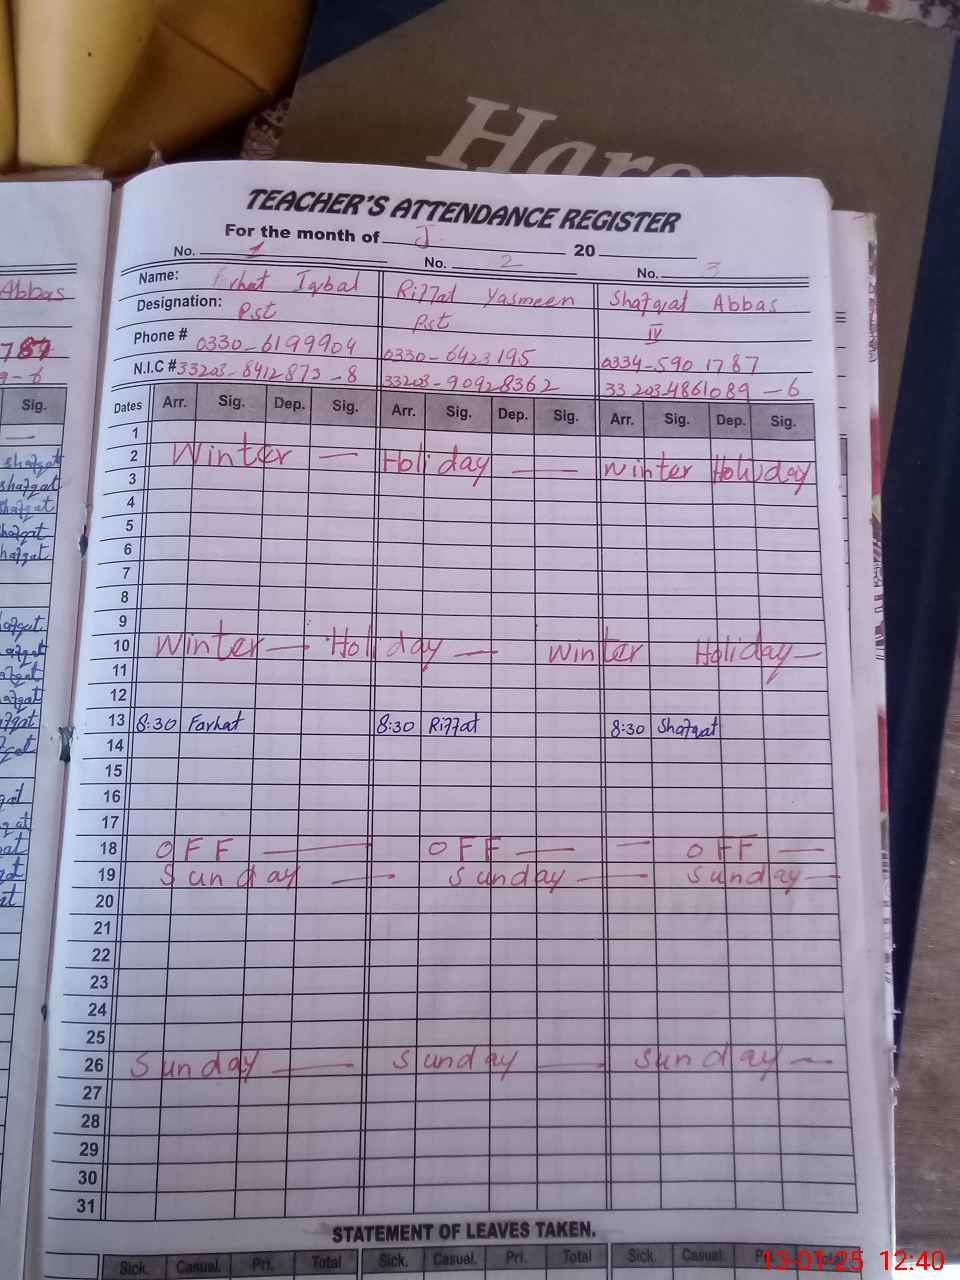 Hare
TEACHER'S ATTENDANCE REGISTER
For the month of J 20
No. 1 No. 2 No. 3
Name: Frhat Iqbal Riffat Yasmeen Shafqat Abbas
Designation: Pst Pst IV
Phone # 0330-6199904 0330-6423195 0334-590 1787
N.I.C # 33203-8412872-8 33203-90928362 33203-4861089-6
Dates Arr. Sig. Dep. Sig. Arr. Sig. Dep. Sig. Arr. Sig. Dep. Sig.
1
2 Winter — Holiday — Winter Holiday
3
4
5
6
7
8
9
10 Winter — Holiday — Winter Holiday —
11
12
13 8:30 Farhat 8:30 Riffat 8:30 Shafqat
14
15
16
17
18 OFF — OFF — — OFF —
19 Sunday — Sunday — Sunday —
20
21
22
23
24
25
26 Sunday — Sunday — Sunday —
27
28
29
30
31
STATEMENT OF LEAVES TAKEN.
Sick. Casual. Pri. Total Sick. Casual. Pri. Total Sick. Casual.
13-01-25 12:40
Abbas
787
9-6
Sig.
shafqat
shafqat
shafqat
shafqat
hafqat